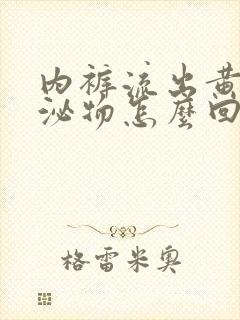 内裤流出黄
泌物怎麼回
格雷米奥